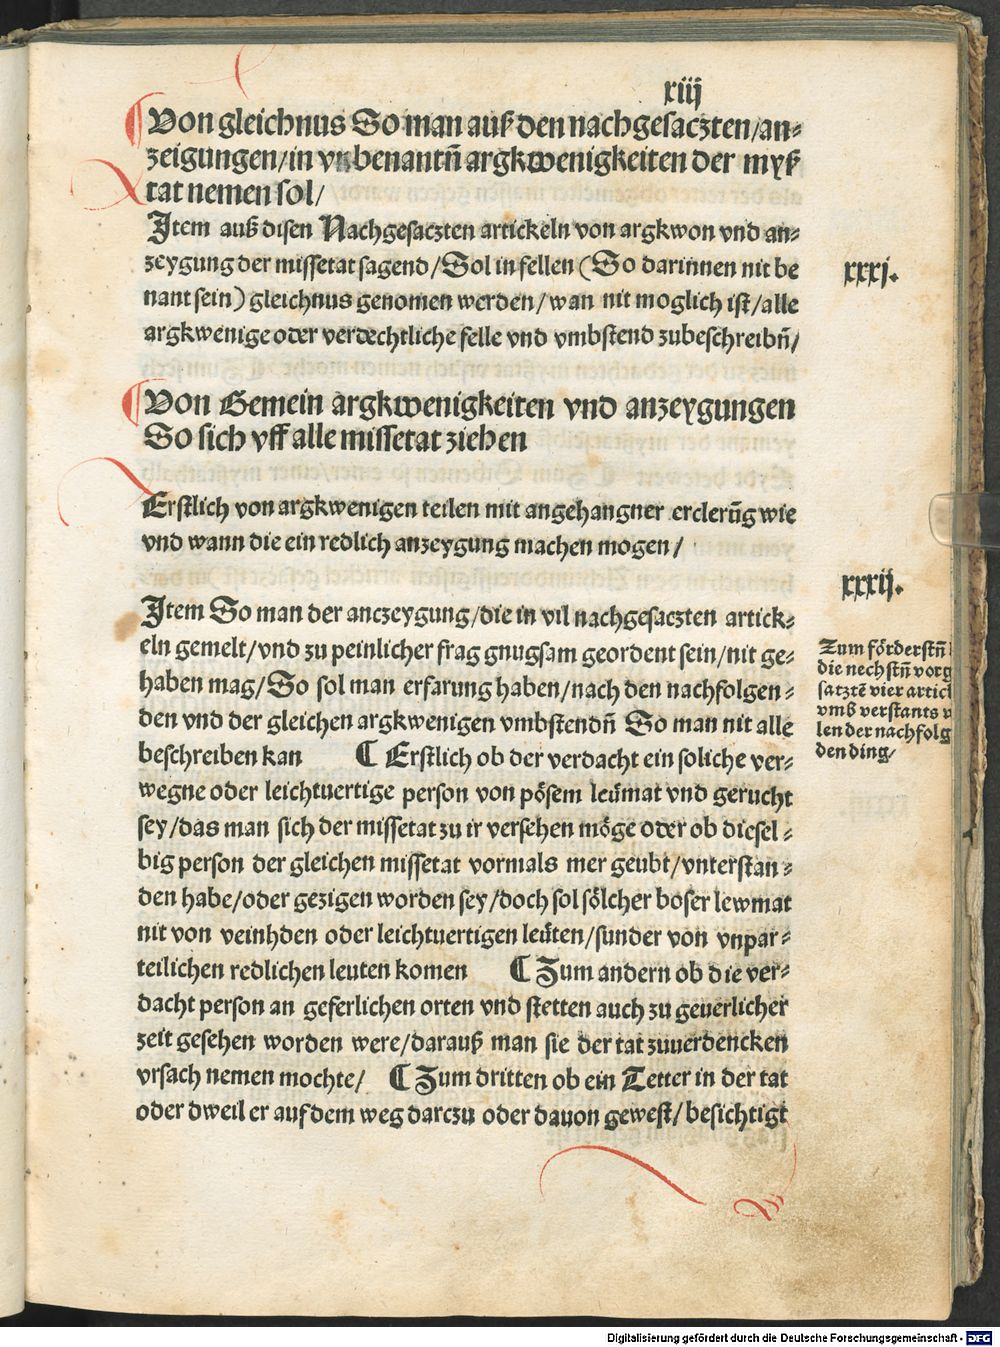 xiij
Von gleichnus So man auß den nachgesaczten/an⸗
zeigungen/in vnbenantñ argkwenigkeiten der myß
tat nemen sol/
Item auß disen Nachgesaczten artickeln von argkwon vnd an⸗
zeygung der missetat sagend/Sol in fellen (So darinnen nit be
nant sein) gleichnus genomen werden/wan nit moglich ist/alle
argkwenige oder verdechtliche felle vnd vmbstend zubeschreibñ/
xxxj.
Von Gemein argkwenigkeiten vnd anzeygungen
So sich vff alle missetat ziehen
Erstlich von argkwenigen teilen mit angehangner erclerūg wie
vnd wann die ein redlich anzeygung machen mogen/
xxxij.
Item So man der anczeygung/die in vil nachgesaczten artick⸗
eln gemelt/vnd zu peinlicher frag gnugsam geordent sein/nit ge⸗
haben mag/So sol man erfarung haben/nach den nachfolgen⸗
den vnd der gleichen argkwenigen vmbstendñ So man nit alle
beschreiben kan ¶ Erstlich ob der verdacht ein soliche ver⸗
wegne oder leichtuertige person von pösem leümat vnd gerucht
sey/das man sich der missetat zu ir versehen möge oder ob diesel⸗
big person der gleichen missetat vormals mer geubt/vnterstan⸗
den habe/oder gezigen worden sey/doch sol sölcher boser lewmat
nit von veinhden oder leichtuertigen leüten/sunder von vnpar⸗
teilichen redlichen leuten komen ¶ Zum andern ob die ver⸗
dacht person an geferlichen orten vnd stetten auch zu geuerlicher
zeit gesehen worden were/darauß man sie der tat zuuerdencken
vrsach nemen mochte/ ¶ Zum dritten ob ein Tetter in der tat
oder dweil er auf dem weg darczu oder dauon gewest/besichtigt
Zum förderstñ
die nechstñ vorg
satztē vier artic
vmß verstants
len der nachfolg
den ding/
Digitalisierung gefördert durch die Deutsche Forschungsgemeinschaft - DFG